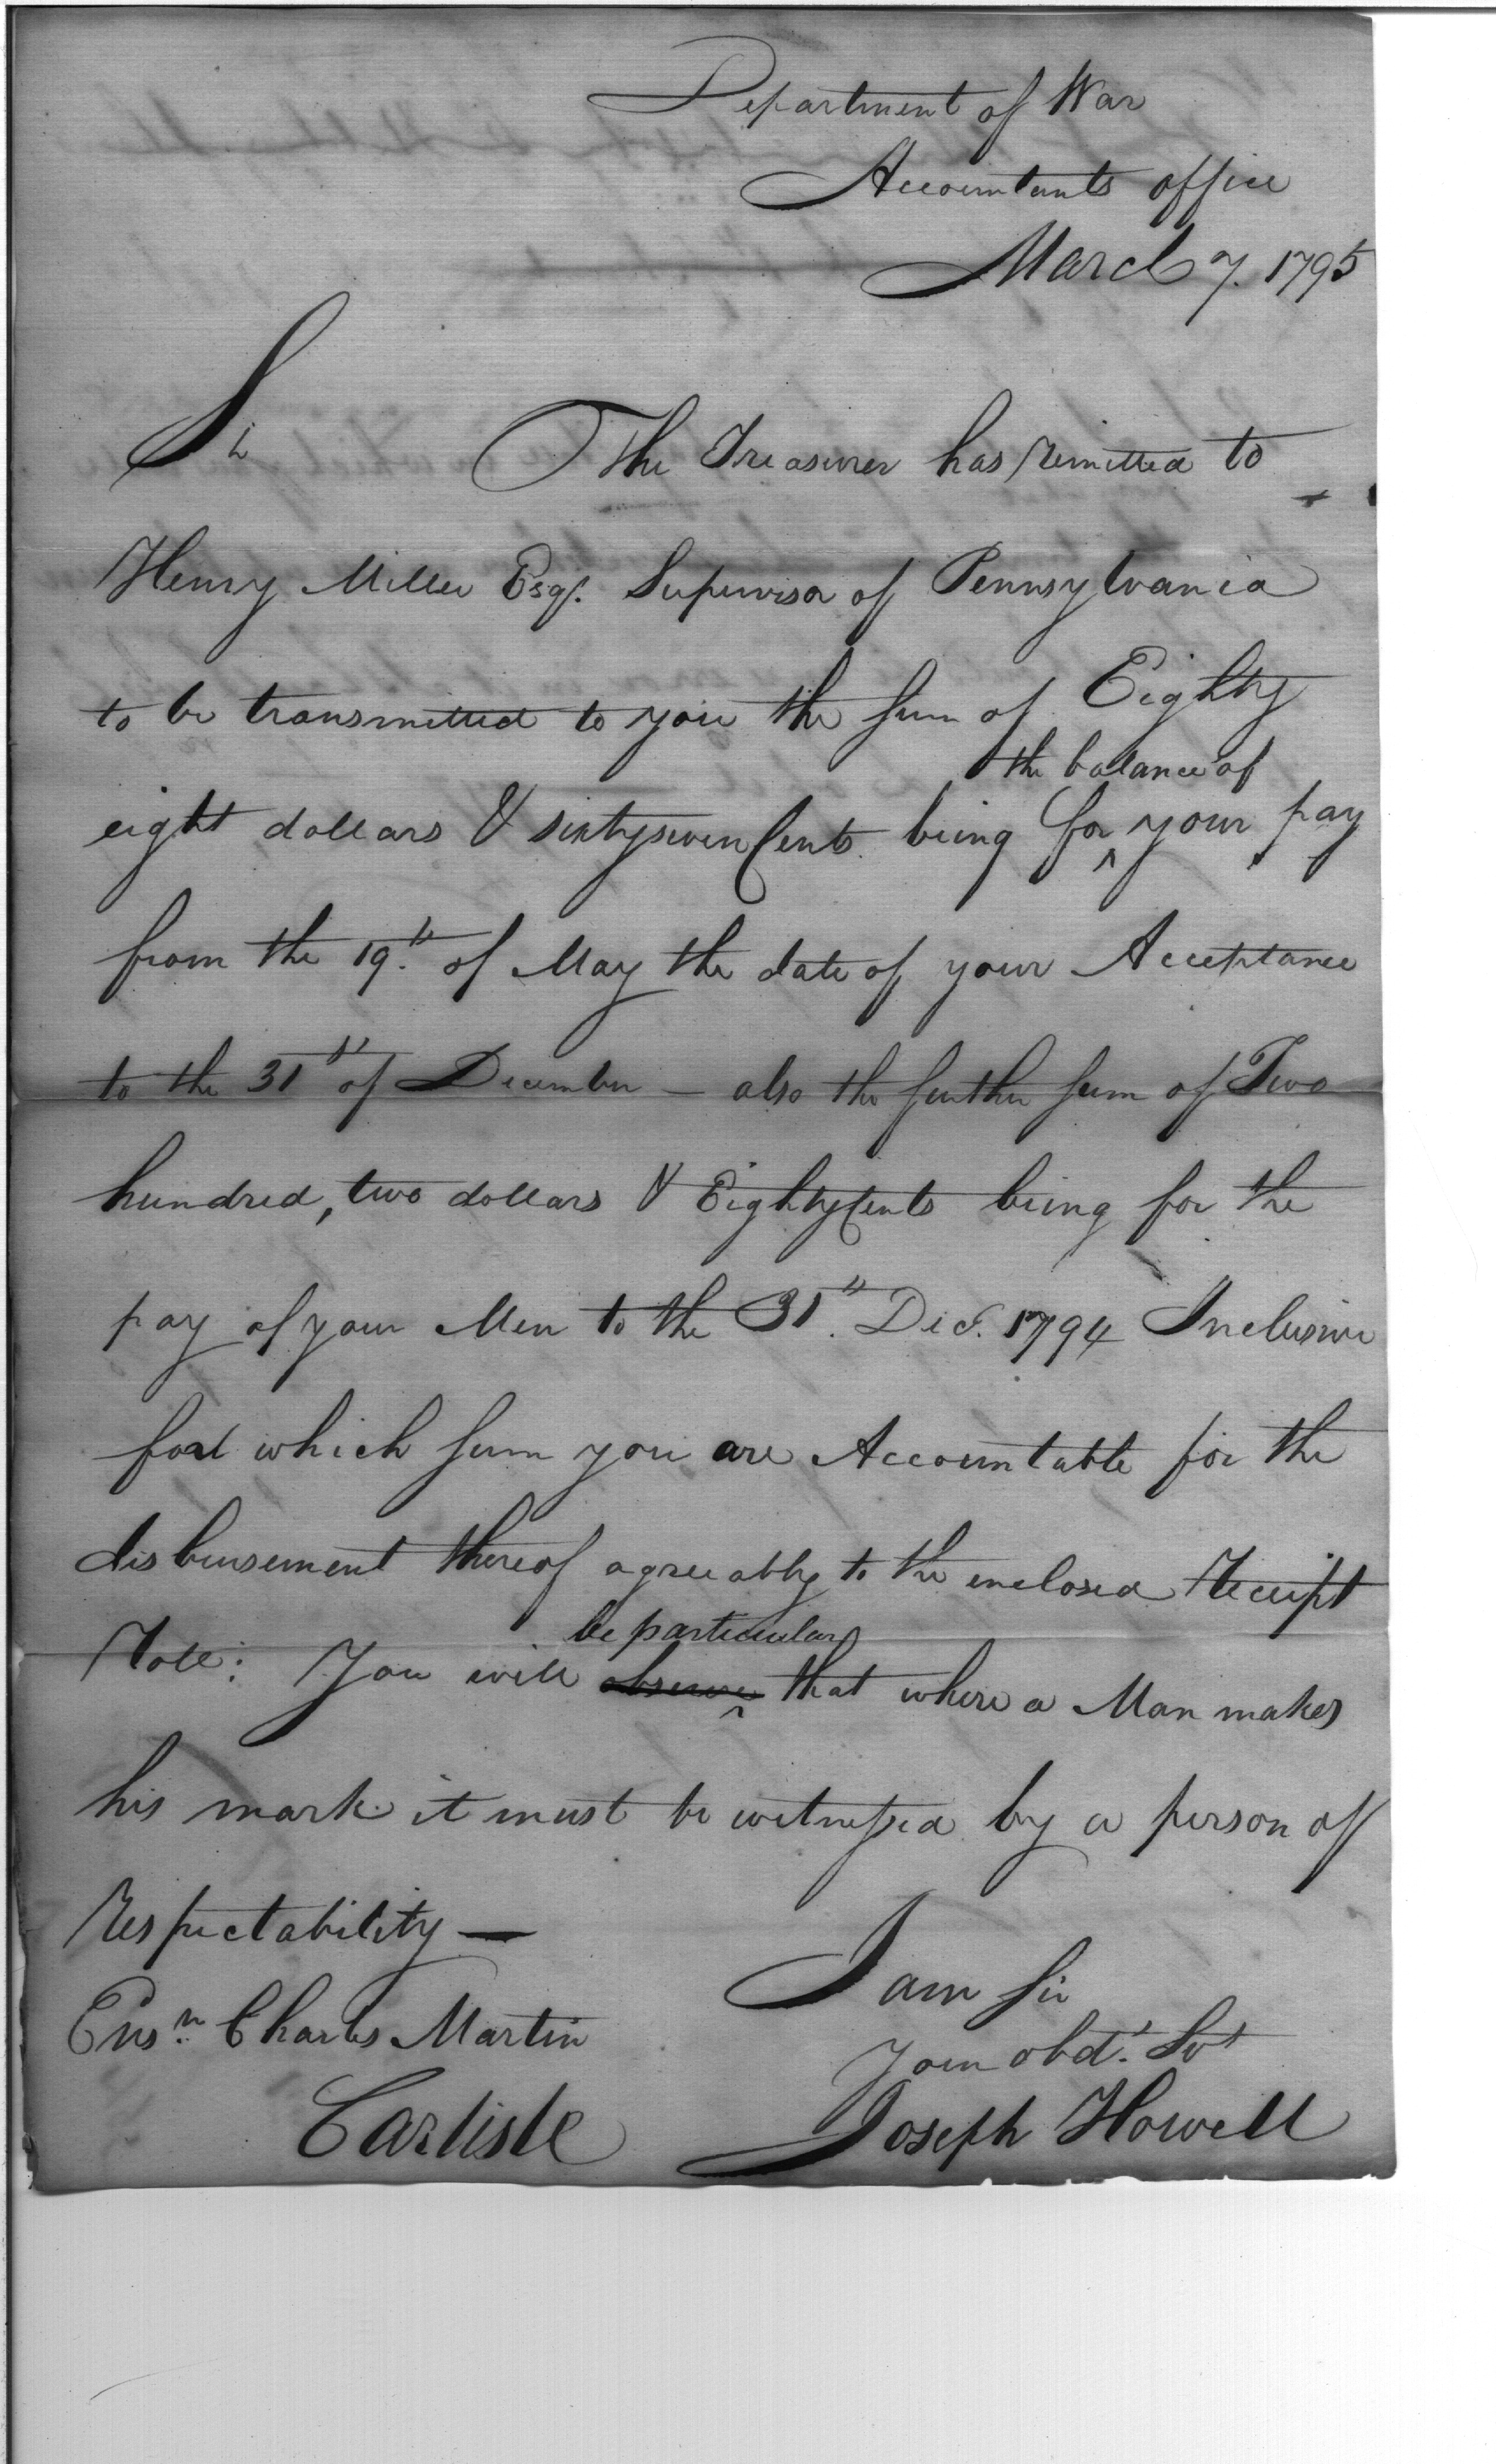 Department of War
Accountants office
March 7. 1795
Sir The Treasurer has remitted to
Henry Miller Esqr. Supervisor of Pennsylvania
to be transmitted to you the sum of Eighty
the balance of
eight dollars & sixtyseven Cents being for ^ your pay
from the 19th. of May the date of your Acceptance
to the 31st of December – also the further sum of Two
hundred, two dollars & Eighty Cents being for the
pay of your Men to the 31st. Decr. 1794 Inclusive
for which sum you are Accountable for the
disbursement thereof agreeably to the enclosed Receipt
be particular
Note: You will observe ^ that where a Man makes
his mark it must be witnessed by a person of
respectability —
I am Sir
Your obdt. Svt
Joseph Howell
Ensn. Charles Martin
Carlisle